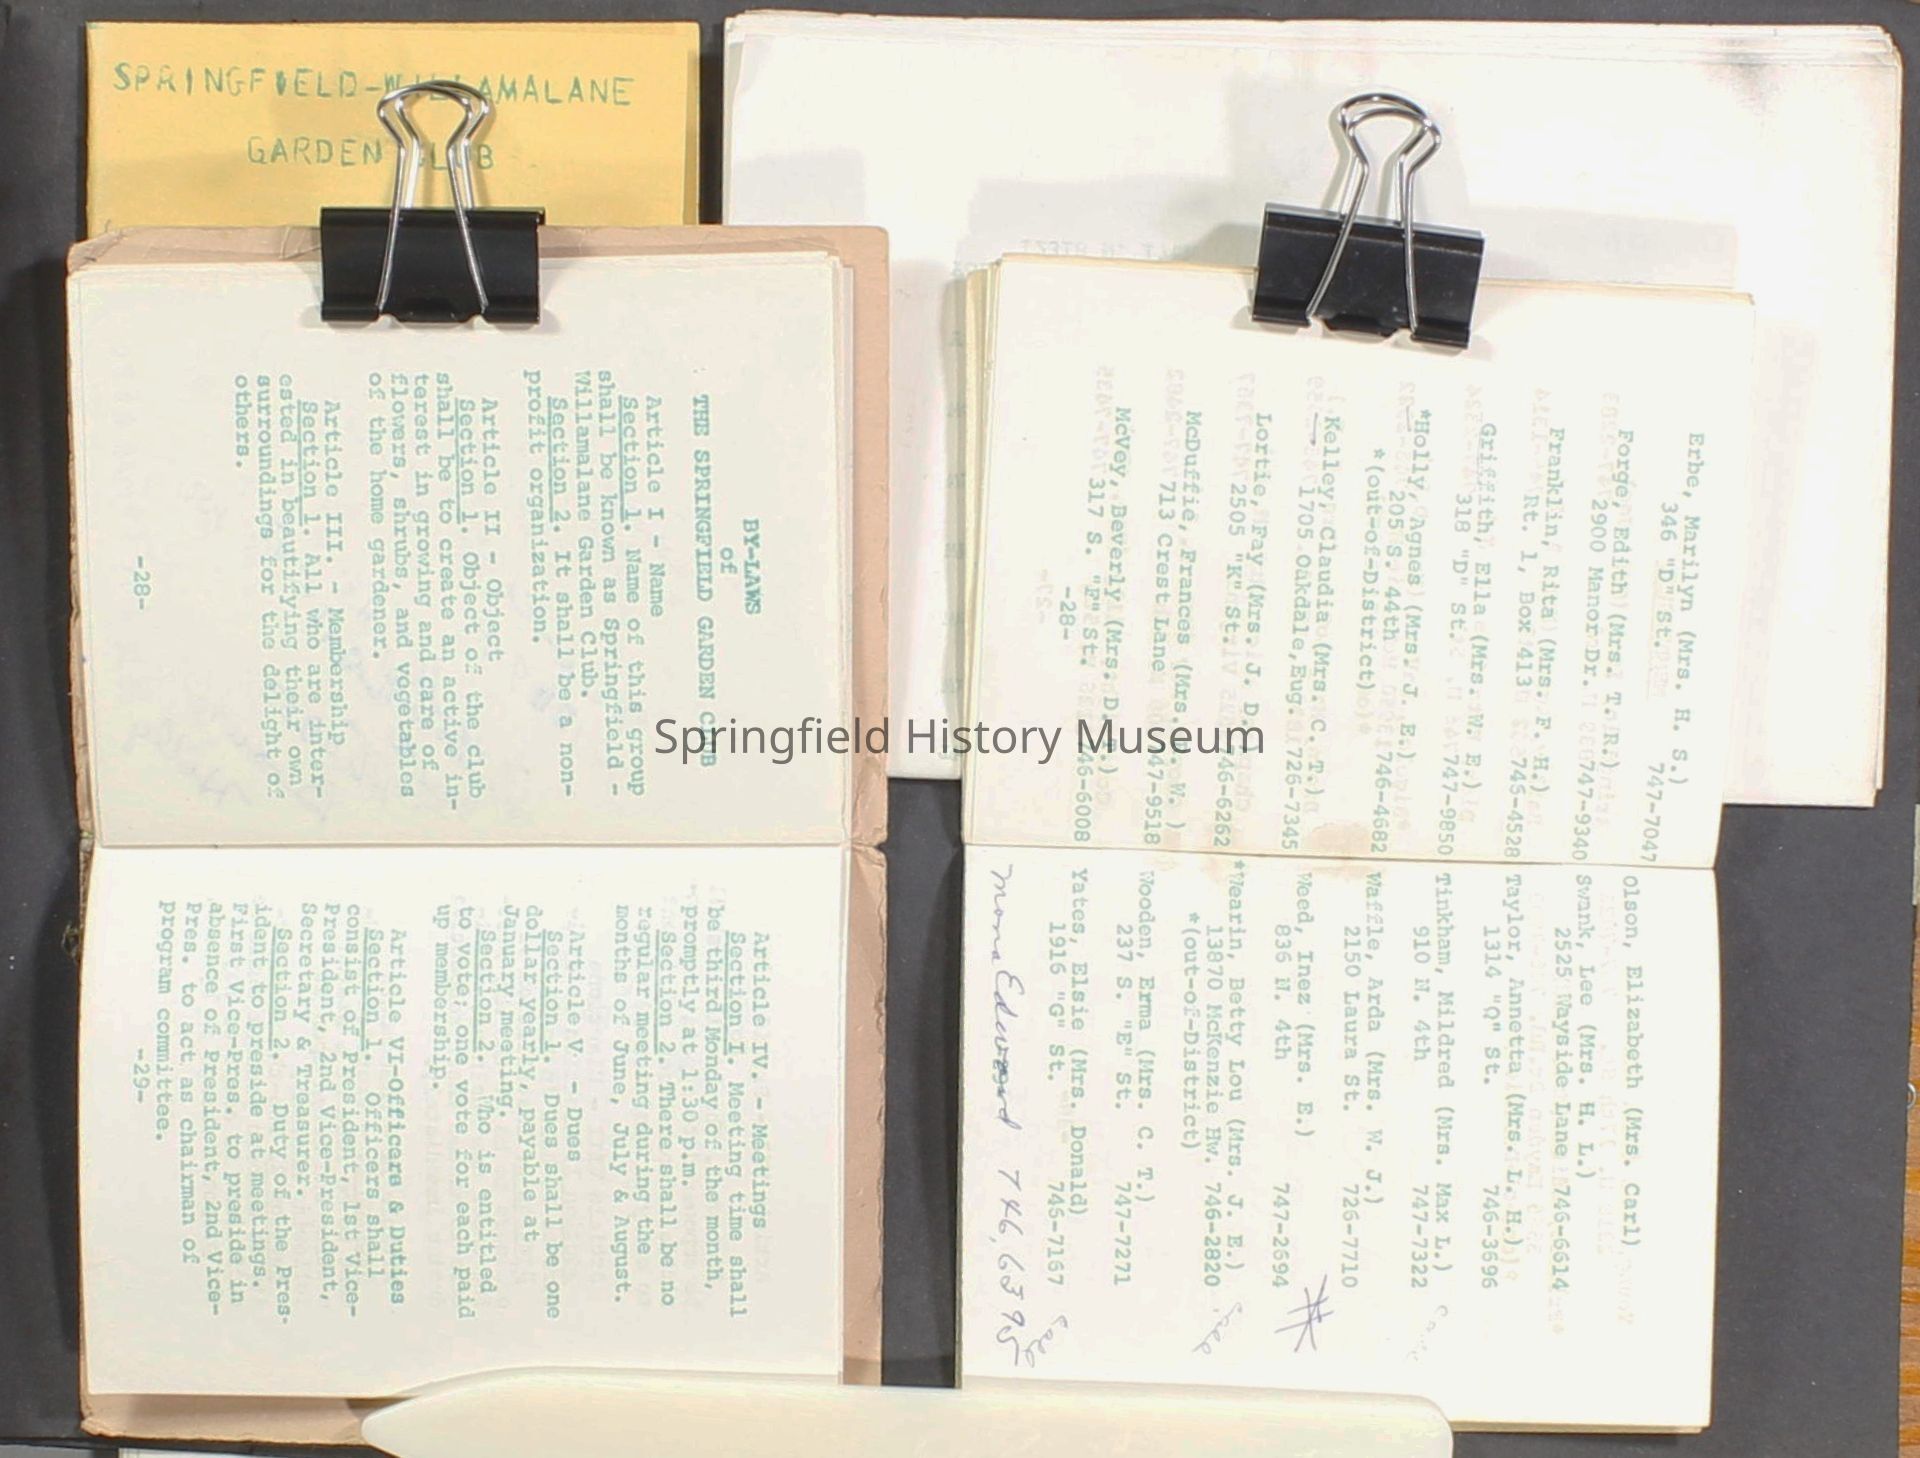 SPRINGFIELD-WILLAMALANE
GARDEN CLUB
BY-LAWS
of
THE SPRINGFIELD GARDEN CLUB
Article I - Name
Section 1. Name of this group
shall be known as Springfield -
Willamalane Garden Club.
Section 2. It shall be a non-
profit organization.
Article II - Object
Section 1. Object of the club
shall be to create an active in-
terest in growing and care of
flowers, shrubs, and vegetables
of the home gardener.
Article III. - Membership
Section 1. All who are inter-
ested in beautifying their own
surroundings for the delight of
others.
-28-
Article IV. - Meetings
Section I. Meeting time shall
be third Monday of the month,
promptly at 1:30 p.m.
Section 2. There shall be no
regular meeting during the
months of June, July & August.
Article V. - Dues
Section 1. Dues shall be one
dollar yearly, payable at
January meeting.
Section 2. Who is entitled
to vote; one vote for each paid
up membership.
Article VI-Officers & Duties
Section 1. Officers shall
consist of President, 1st Vice-
President, 2nd Vice-President,
Secretary & Treasurer.
Section 2. Duty of the Pres-
ident to preside at meetings.
First Vice-Pres. to preside in
absence of President, 2nd Vice-
Pres. to act as chairman of
program committee.
-29-
Erbe, Marilyn (Mrs. H. S.)
346 "D" St. 747-7047
Forge, Edith (Mrs. T. R.)
2900 Manor Dr. 747-9340
Franklin, Rita (Mrs. F. H.)
Rt. 1, Box 413 746-4528
Griffith, Ella (Mrs. W. E.)
318 "D" St. 747-9850
*Holly, Agnes (Mrs. J. E.)
205 S. 44th 746-4682
*(out-of-District)
Kelley, Claudia (Mrs. C. T.)
1705 Oakdale, Eug. 726-7345
Lortie, Fay (Mrs. J. D.)
2505 "K" St. 746-6262
McDuffie, Frances (Mrs. W. )
713 Crest Lane 747-9518
McVey, Beverly (Mrs. D. T.)
317 S. "F" St. 746-6008
-28-
Olson, Elizabeth (Mrs. Carl)
Swank, Lee (Mrs. H. L.)
2525 Wayside Lane 746-6614
Taylor, Annetta (Mrs. L. H.)
1314 "Q" St. 746-3696
Tinkham, Mildred (Mrs. Max L.)
910 N. 4th 747-7322
Waffle, Arda (Mrs. W. J.)
2150 Laura St. 726-7710
Weed, Inez (Mrs. E.)
836 N. 4th 747-2694
*Wearin, Betty Lou (Mrs. J. E.)
13870 McKenzie Hw. 746-2820
*(out-of-District)
Wooden, Erma (Mrs. C. T.)
237 S. "E" St. 747-7271
Yates, Elsie (Mrs. Donald)
1916 "G" St. 746-7167
746,6395
Springfield History Museum